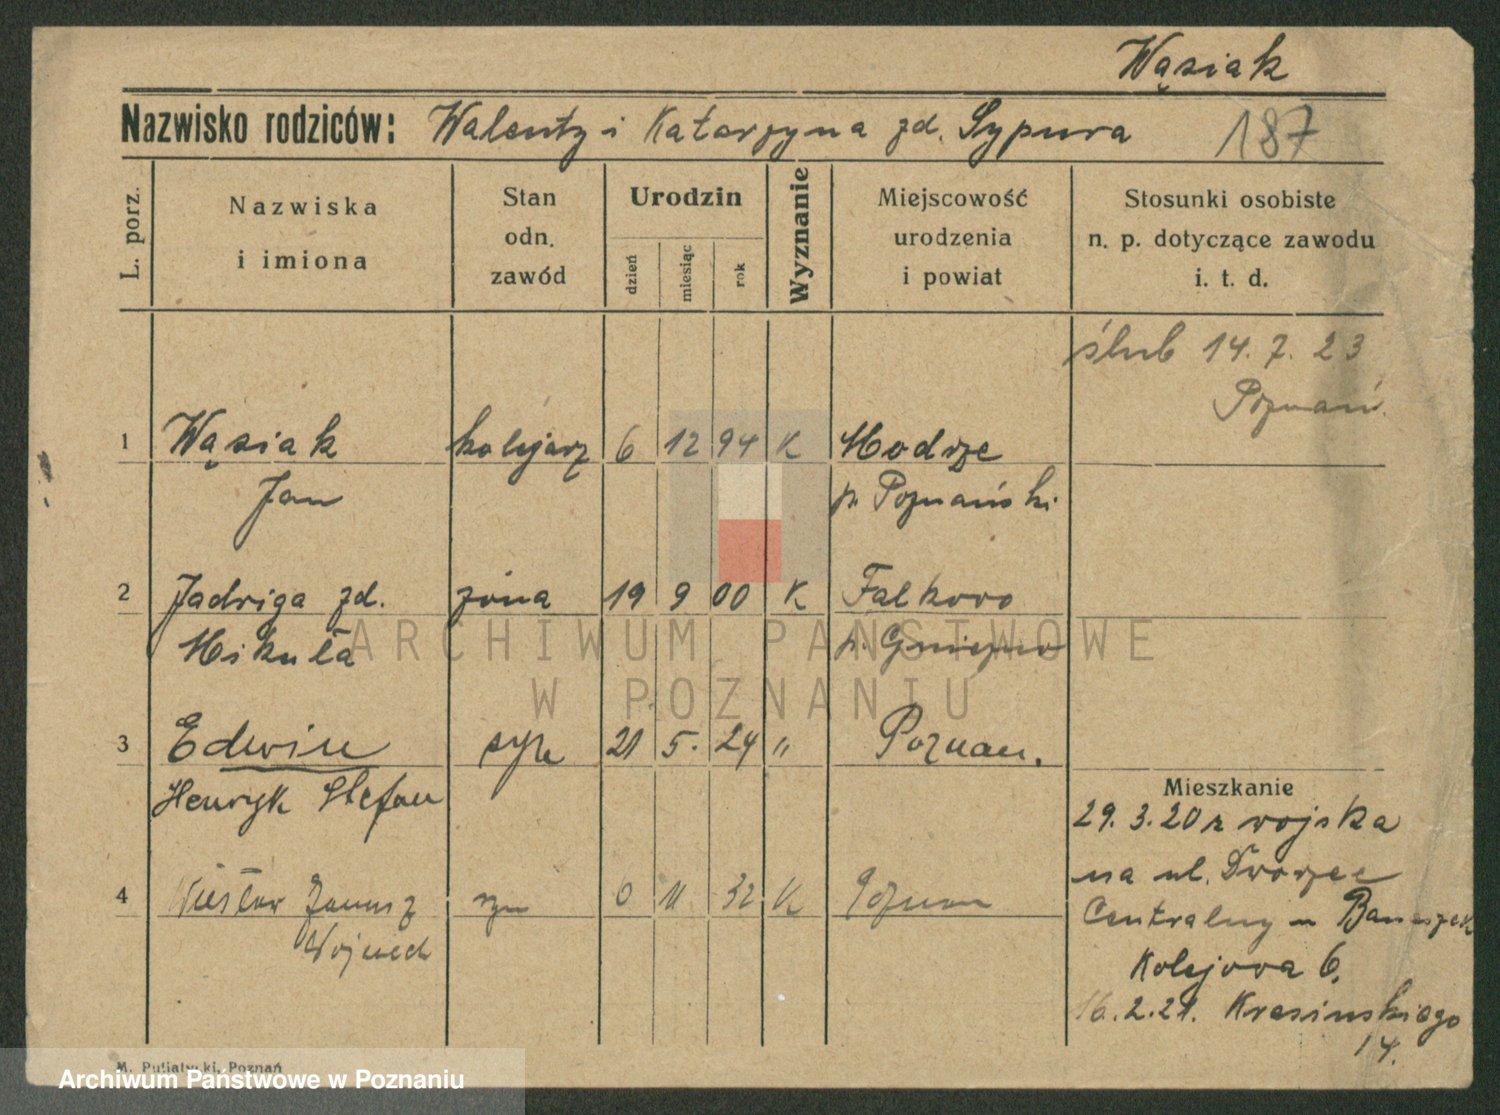 Wąsiak
Nazwisko rodziców: Walenty i Katarzyna zd. Sypura 187
L. porz. Nazwiska i imiona Stan odn. zawód Urodzin dzień miesiąc rok Wyznanie Miejscowość urodzenia i powiat Stosunki osobiste n. p. dotyczące zawodu i. t. d.
ślub 14. 7. 23
Poznań
1 Wąsiak kolejarz 6 12 94 K Modrze
Jan p. Poznański
2 Jadwiga zd. żona 19 9 00 K Fałkowo
Mikuła p. Gniezno
ARCHIWUM PAŃSTWOWE
W POZNANIU
3 Edwin syn 21 5. 24 " Poznań.
Henryk Stefan
Mieszkanie
29. 3. 20 z wojska
na ul. Dworzec
4 Wiesław Janusz syn 11 32 K Poznań
Centralny
Wojciech
Kolejowa 6.
16. 2. 21. Krasińskiego
14.
Poznań
Archiwum Państwowe w Poznaniu